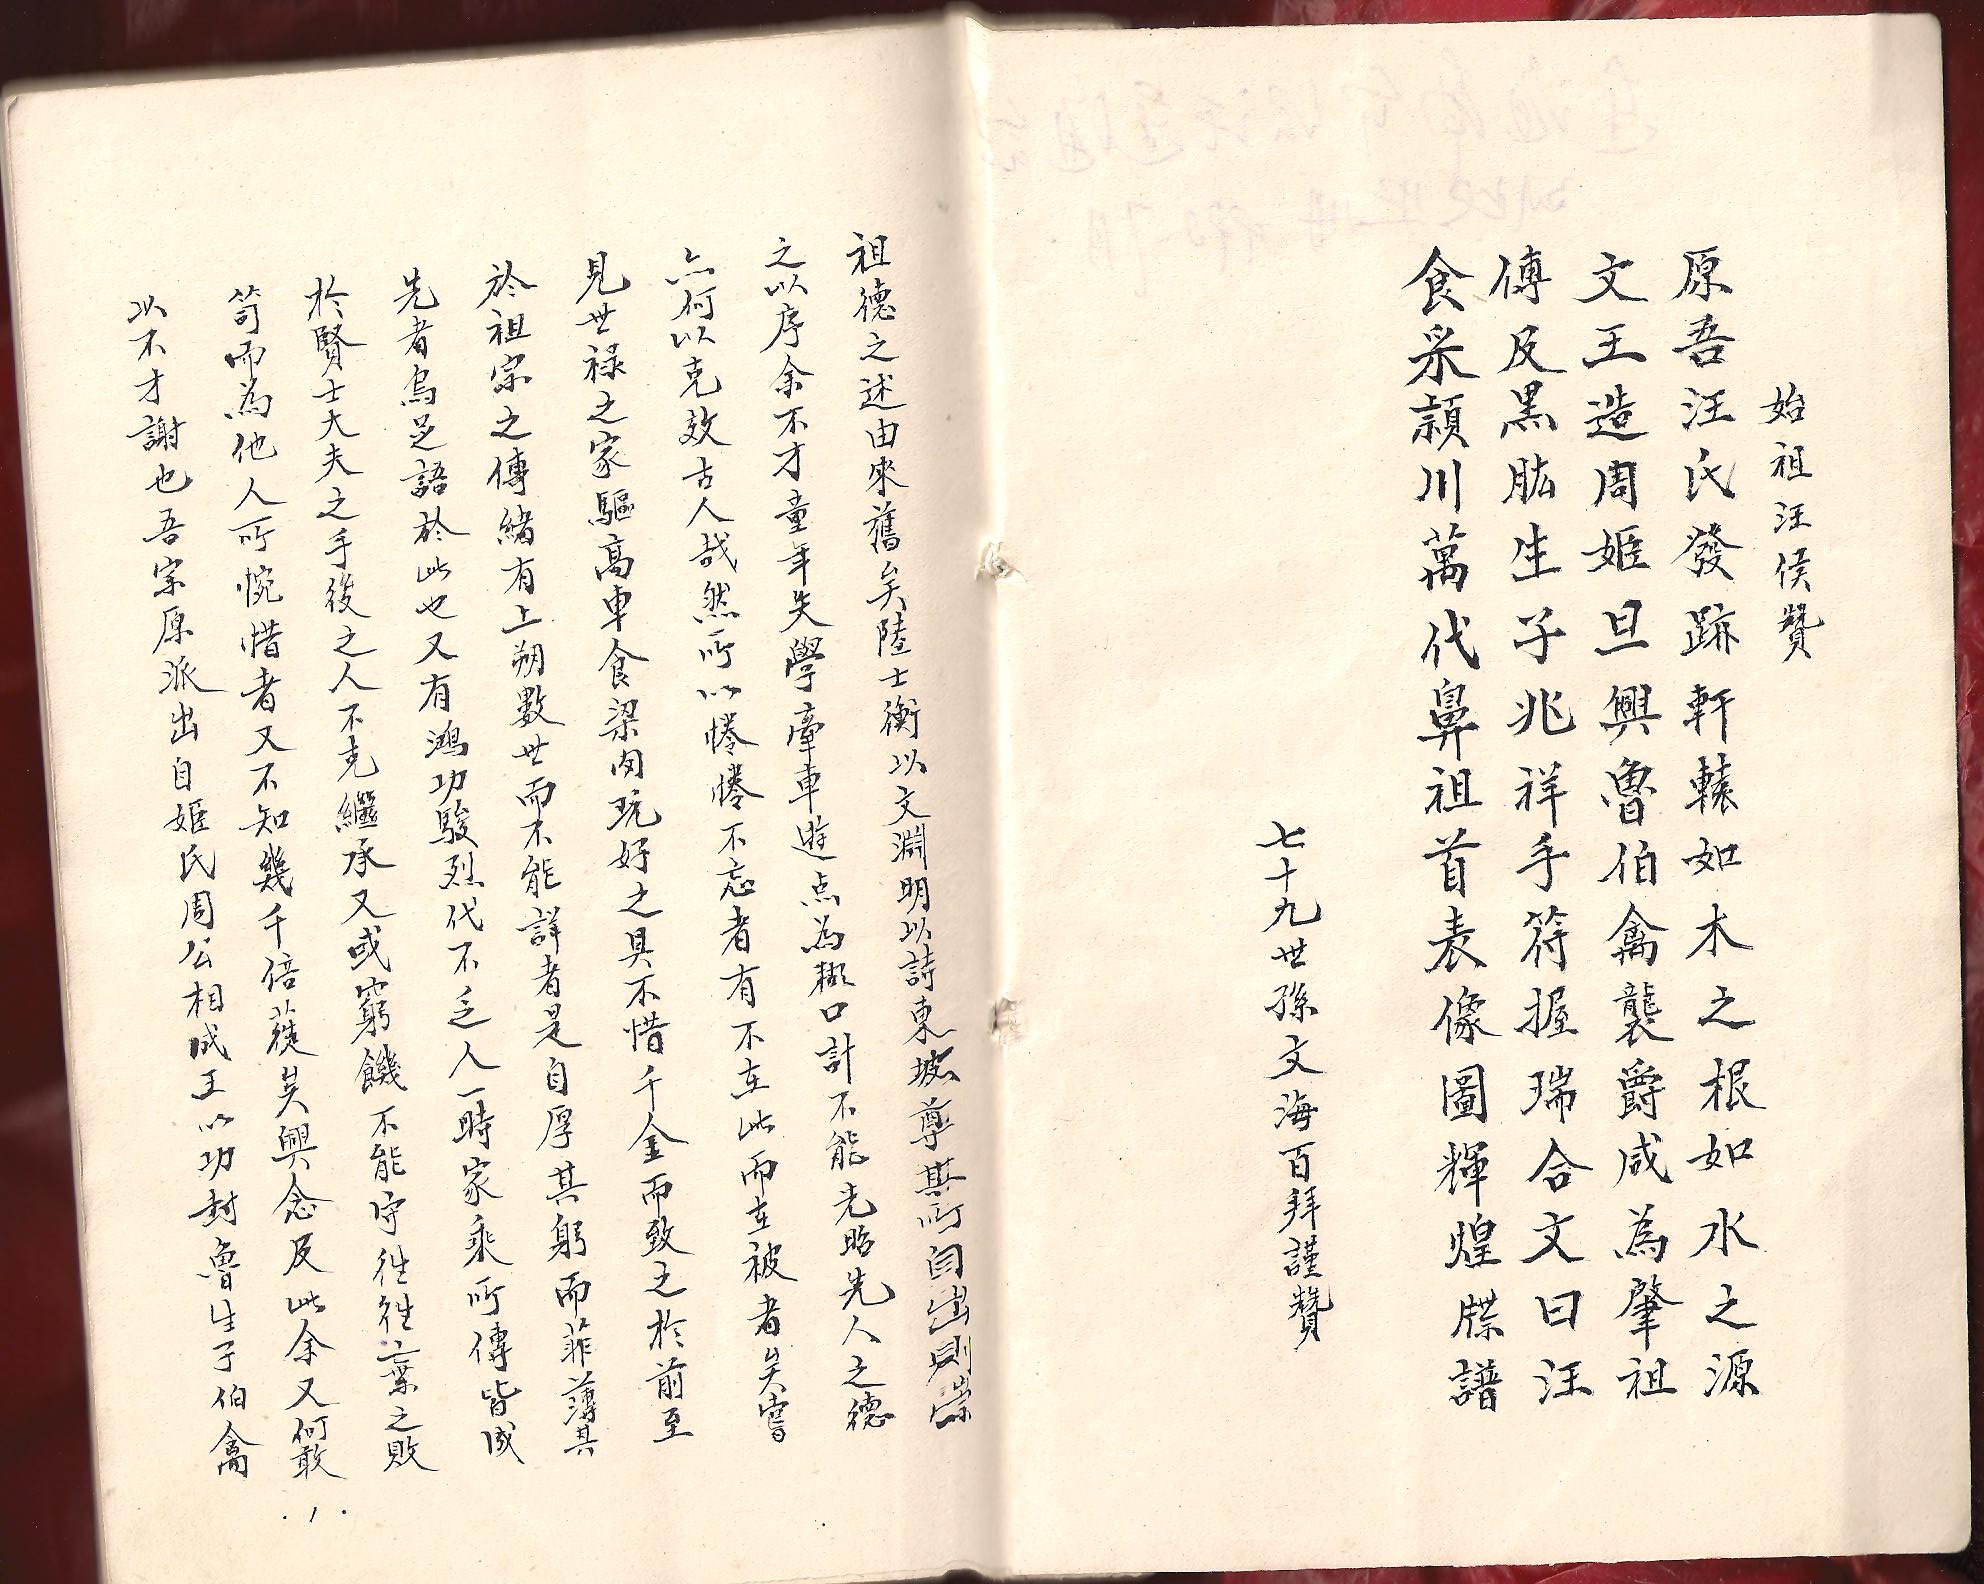 始祖汪侯贊
原吾汪氏發跡軒轅如木之根如水之源
文王造周姬旦興魯伯禽襲爵咸為肇祖
傳及黑肱生子兆祥手符握瑞合文曰汪
食采潁川萬代鼻祖首表像圖輝煌牒譜
七十九世孫文海百拜謹贊
祖德之述由來舊矣陸士衡以文淵明以詩東坡尊其所自出則崇
之以序余不才童年失學牽車遊点為糊口計不能光昭先人之德
亦何以克效古人哉然所以惓惓不忘者有不在此而在被者矣嘗
見世祿之家驅高車食粱肉玩好之具不惜千金而致之於前至
於祖宗之傳緒有上朔數世而不能詳者是自厚其躬而菲薄其
先者烏足語於此也又有鴻功駿烈代不乏人一時家乘所傳皆成
於賢士大夫之手後之人不克繼承又或窮饑不能守往往棄之敗
笥而為他人所惋惜者又不知幾千倍蓰矣興念及此余又何敢
以不才謝也吾宗原派出自姬氏周公相成王以功封魯生子伯禽